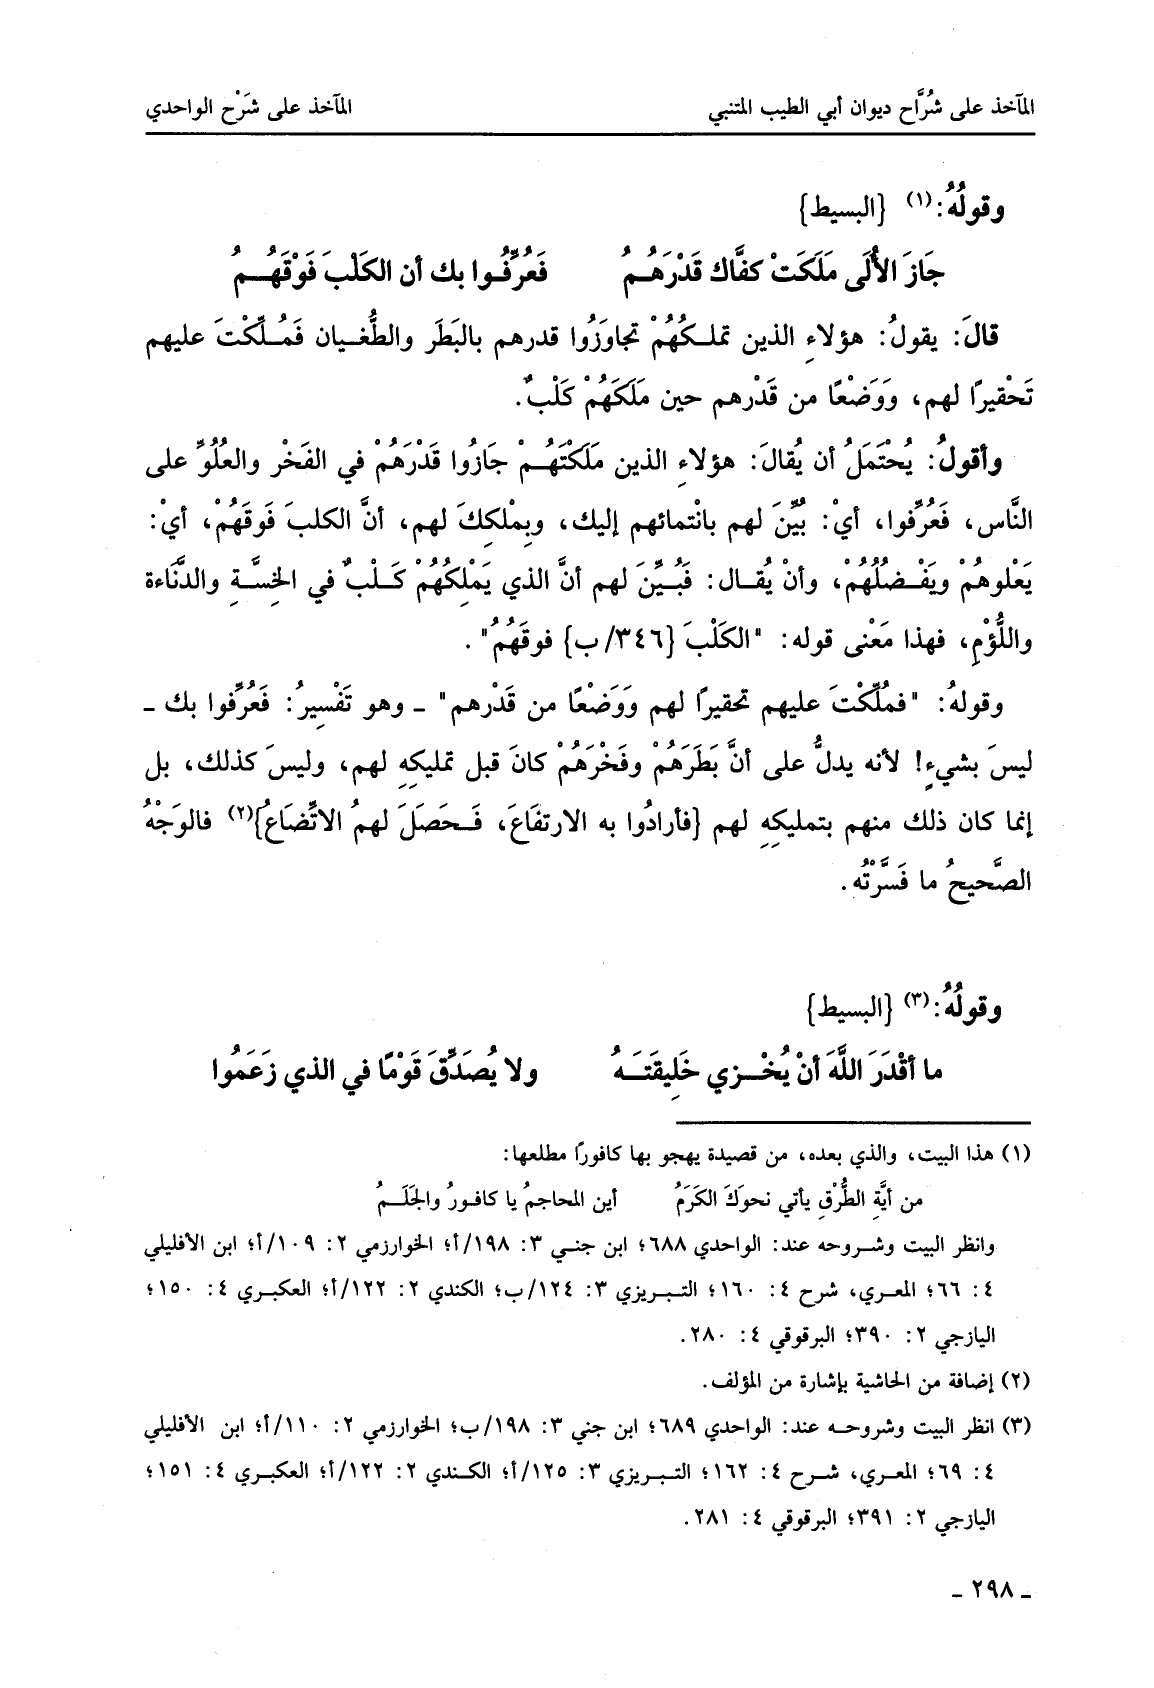 المآخذ على شُرَّاح ديوان أبي الطيب المتنبي المآخذ على شَرْح الواحدي
وقولُهُ:(١) {البسيط}
جَازَ الأُلَى مَلَكَتْ كفَّاك قَدْرَهُمُ فَعُرِّفُوا بك أن الكَلْبَ فَوْقَهُمُ
قالَ: يقولُ: هؤلاءِ الذين تملكُهُمْ تجاوَزُوا قدرهم بالبَطَر والطُّغيان فَمُلِّكْتَ عليهم
تَحْقيرًا لهم، وَوَضْعًا من قَدْرهم حين مَلَكَهُمْ كَلْبٌ.
وأقولُ: يُحْتَمَلُ أن يُقالَ: هؤلاءِ الذين مَلَكْتَهُمْ جَازُوا قَدْرَهُمْ في الفَخْر والعُلُوِّ على
النَّاس، فَعُرِّفوا، أيْ: بُيِّنَ لهم بانْتمائهم إليك، وبِمْلكِكَ لهم، أنَّ الكلبَ فَوقَهُمْ، أيْ:
يَعْلوهُمْ ويَفْضُلُهُمْ، وأنْ يُقال: فَبُيِّنَ لهم أنَّ الذي يَمْلِكُهُمْ كَلْبٌ في الخِسَّةِ والدَّنَاءة
واللُّؤْمِ، فهذا مَعْنى قوله: "الكَلْبَ {٣٤٦/ب} فوقَهُمُ".
وقولهُ: "فمُلِّكْتَ عليهم تحقيرًا لهم وَوَضْعًا من قَدْرهم" ـ وهو تَفْسيرُ: فَعُرِّفوا بك ـ
ليسَ بشيءٍ! لأنه يدلُّ على أنَّ بَطَرَهُمْ وفَخْرَهُمْ كانَ قبل تمليكِهِ لهم، وليسَ كذلك، بل
إنما كان ذلك منهم بتمليكِهِ لهم {فأرادُوا به الارتفَاعَ، فَحَصَلَ لهمُ الاتِّضَاعُ}(٢) فالوَجْهُ
الصَّحيحُ ما فَسَّرْتُه.
وقولُهُ:(٣) {البسيط}
ما أقْدَرَ اللَّهَ أنْ يُخْزي خَلِيقَتَهُ ولا يُصَدِّقَ قَوْمًا في الذي زَعَمُوا
(١) هذا البيت، والذي بعده، من قصيدة يهجو بها كافورًا مطلعها:
من أيَّةِ الطُّرْقِ يأتي نحوَكَ الكَرَمُ أين المحاجمُ يا كافورُ والجَلَمُ
وانظر البيت وشروحه عند: الواحدي ٦٨٨؛ ابن جني ٣: ١٩٨/أ؛ الخوارزمي ٢: ١٠٩/أ؛ ابن الأفليلي
٤: ٦٦؛ المعري، شرح ٤: ١٦٠؛ التبريزي ٣: ١٢٤/ب؛ الكندي ٢: ١٢٢/أ؛ العكبري ٤: ١٥٠؛
اليازجي ٢: ٣٩٠؛ البرقوقي ٤: ٢٨٠.
(٢) إضافة من الحاشية بإشارة من المؤلف.
(٣) انظر البيت وشروحه عند: الواحدي ٦٨٩؛ ابن جني ٣: ١٩٨/ب؛ الخوارزمي ٢: ١١٠/أ؛ ابن الأفليلي
٤: ٦٩؛ المعري، شرح ٤: ١٦٢؛ التبريزي ٣: ١٢٥/أ؛ الكندي ٢: ١٢٢/أ؛ العكبري ٤: ١٥١؛
اليازجي ٢: ٣٩١؛ البرقوقي ٤: ٢٨١.
ـ ٢٩٨ ـ